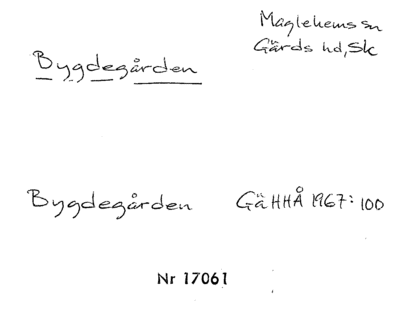 Maglehems sn
Bygdegården
Gärds hd, Sk
Bygdegården GäHHÅ 1967: 100
Nr 17061